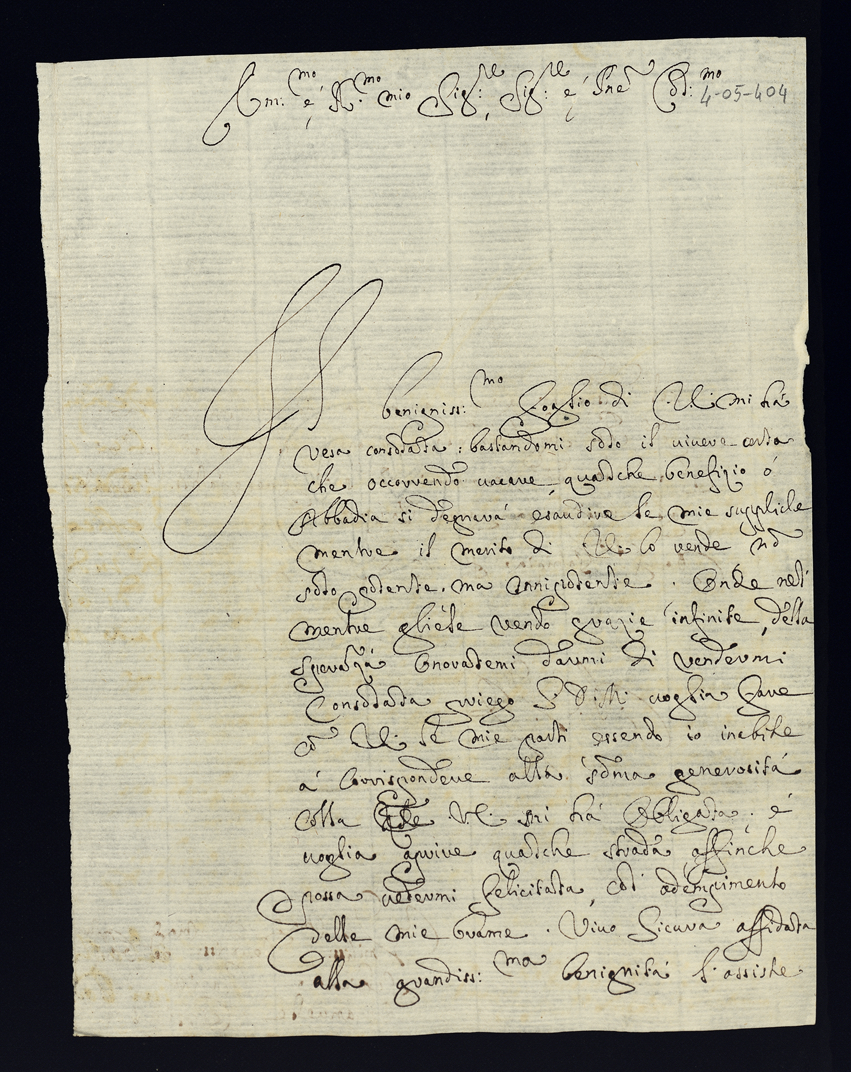 Em:mo é R.mo mio Sig:re, Sig:re é Pne Col:mo 4-05-404
Il benigniss:mo foglio di V.E. mi há
resa consolata; bastandomi solo il vivere certa
che occorrendo vacare qualche benefizio ó
Abbadia si degnará esaudire le mie suppliche
mentre il merito di V.E. lo rende nō
solo potente, ma onnipotente. Onde nel
mentre gliéle rendo grazie infinite della
speranza datami di rendermi
Consolata priego S.D.M. voglia fare
cō V.E. le mie parti essendo io inabile
á Corrispondere alla sōma generositá
colla V.E. mi há Obligata. é
voglia aprire qualche strada, affinche
possa vedermi felicitata, col adempimento
delle mie brame. Vivo Sicura affidata
alla grandiss:ma benignitá l'assiste